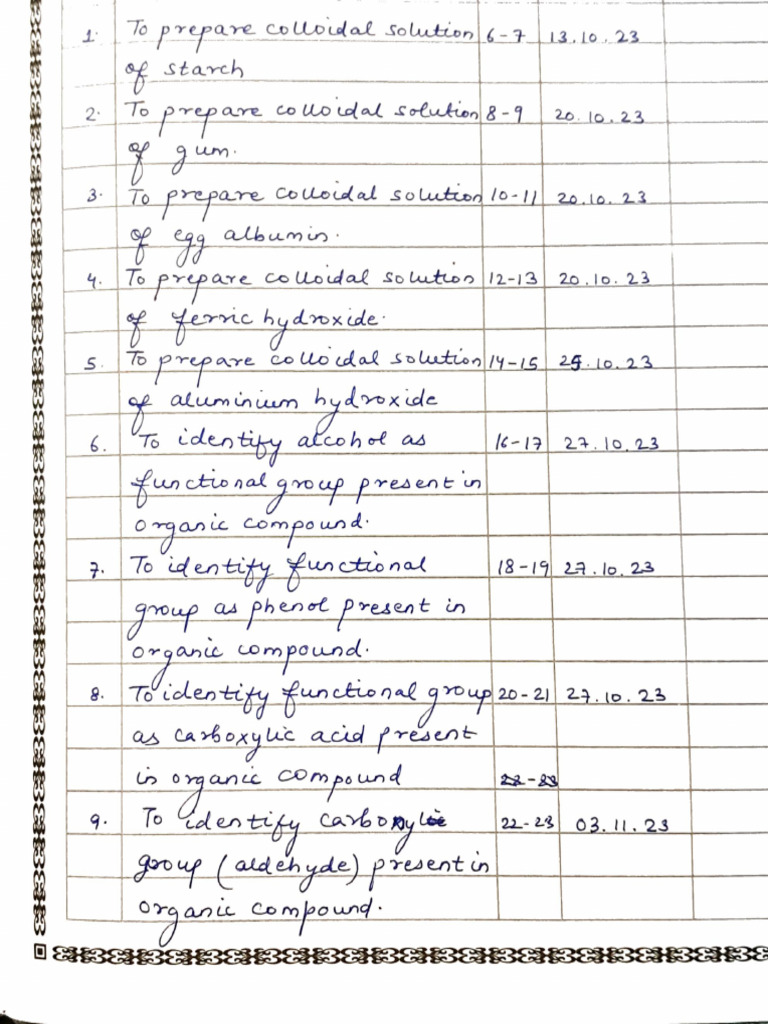 1. To prepare colloidal solution 6-7 13.10.23
of starch
2. To prepare colloidal solution 8-9 20.10.23
of gum.
3. To prepare colloidal solution 10-11 20.10.23
of egg albumin.
4. To prepare colloidal solution 12-13 20.10.23
of ferric hydroxide.
5. To prepare colloidal solution 14-15 25.10.23
of aluminium hydroxide
6. To identify alcohol as 16-17 27.10.23
functional group present in
organic compound.
7. To identify functional 18-19 27.10.23
group as phenol present in
organic compound.
8. To identify functional group 20-21 27.10.23
as carboxylic acid present
in organic compound
9. To identify carbonyl 22-23 03.11.23
group (aldehyde) present in
organic compound.